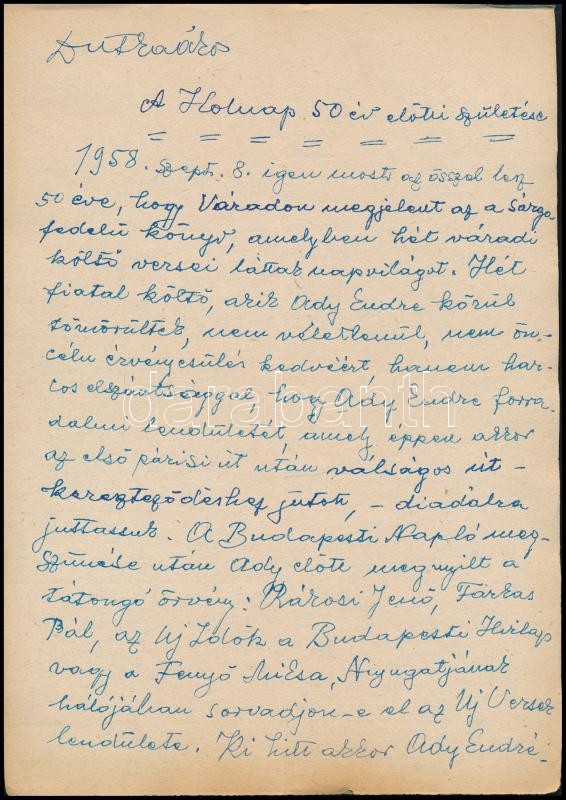 Dutka Ákos
A Holnap 50 év előtti születése
1958. szept. 8. igen most az ősszel lesz
50 éve, hogy Váradon megjelent az a sárga
fedelű könyv, amelyben hét váradi
költő versei láttak napvilágot. Hét
fiatal költő, akik Ady Endre körül
tömörültek, nem véletlenül, nem ön-
célu érvényesülés kedvéért hanem har-
cos elszántsággal, hogy Ady Endre forra-
dalmi lendületét, amely éppen akkor
az első párisi út után válságos út-
kereszteződéshez jutott, - diadalra
juttassuk. A Budapesti Napló meg-
szűnése után Ady előtt megnyilt a
tátongó örvény: Rákosi Jenő, Farkas
Pál, az Uj Idők a Budapesti Hirlap
vagy a Fenyő Miksa, Nyugatjának
hálójában sorvadjon-e el az Uj Versek
lendülete. Ki hitt akkor Ady Endré-
darabanth